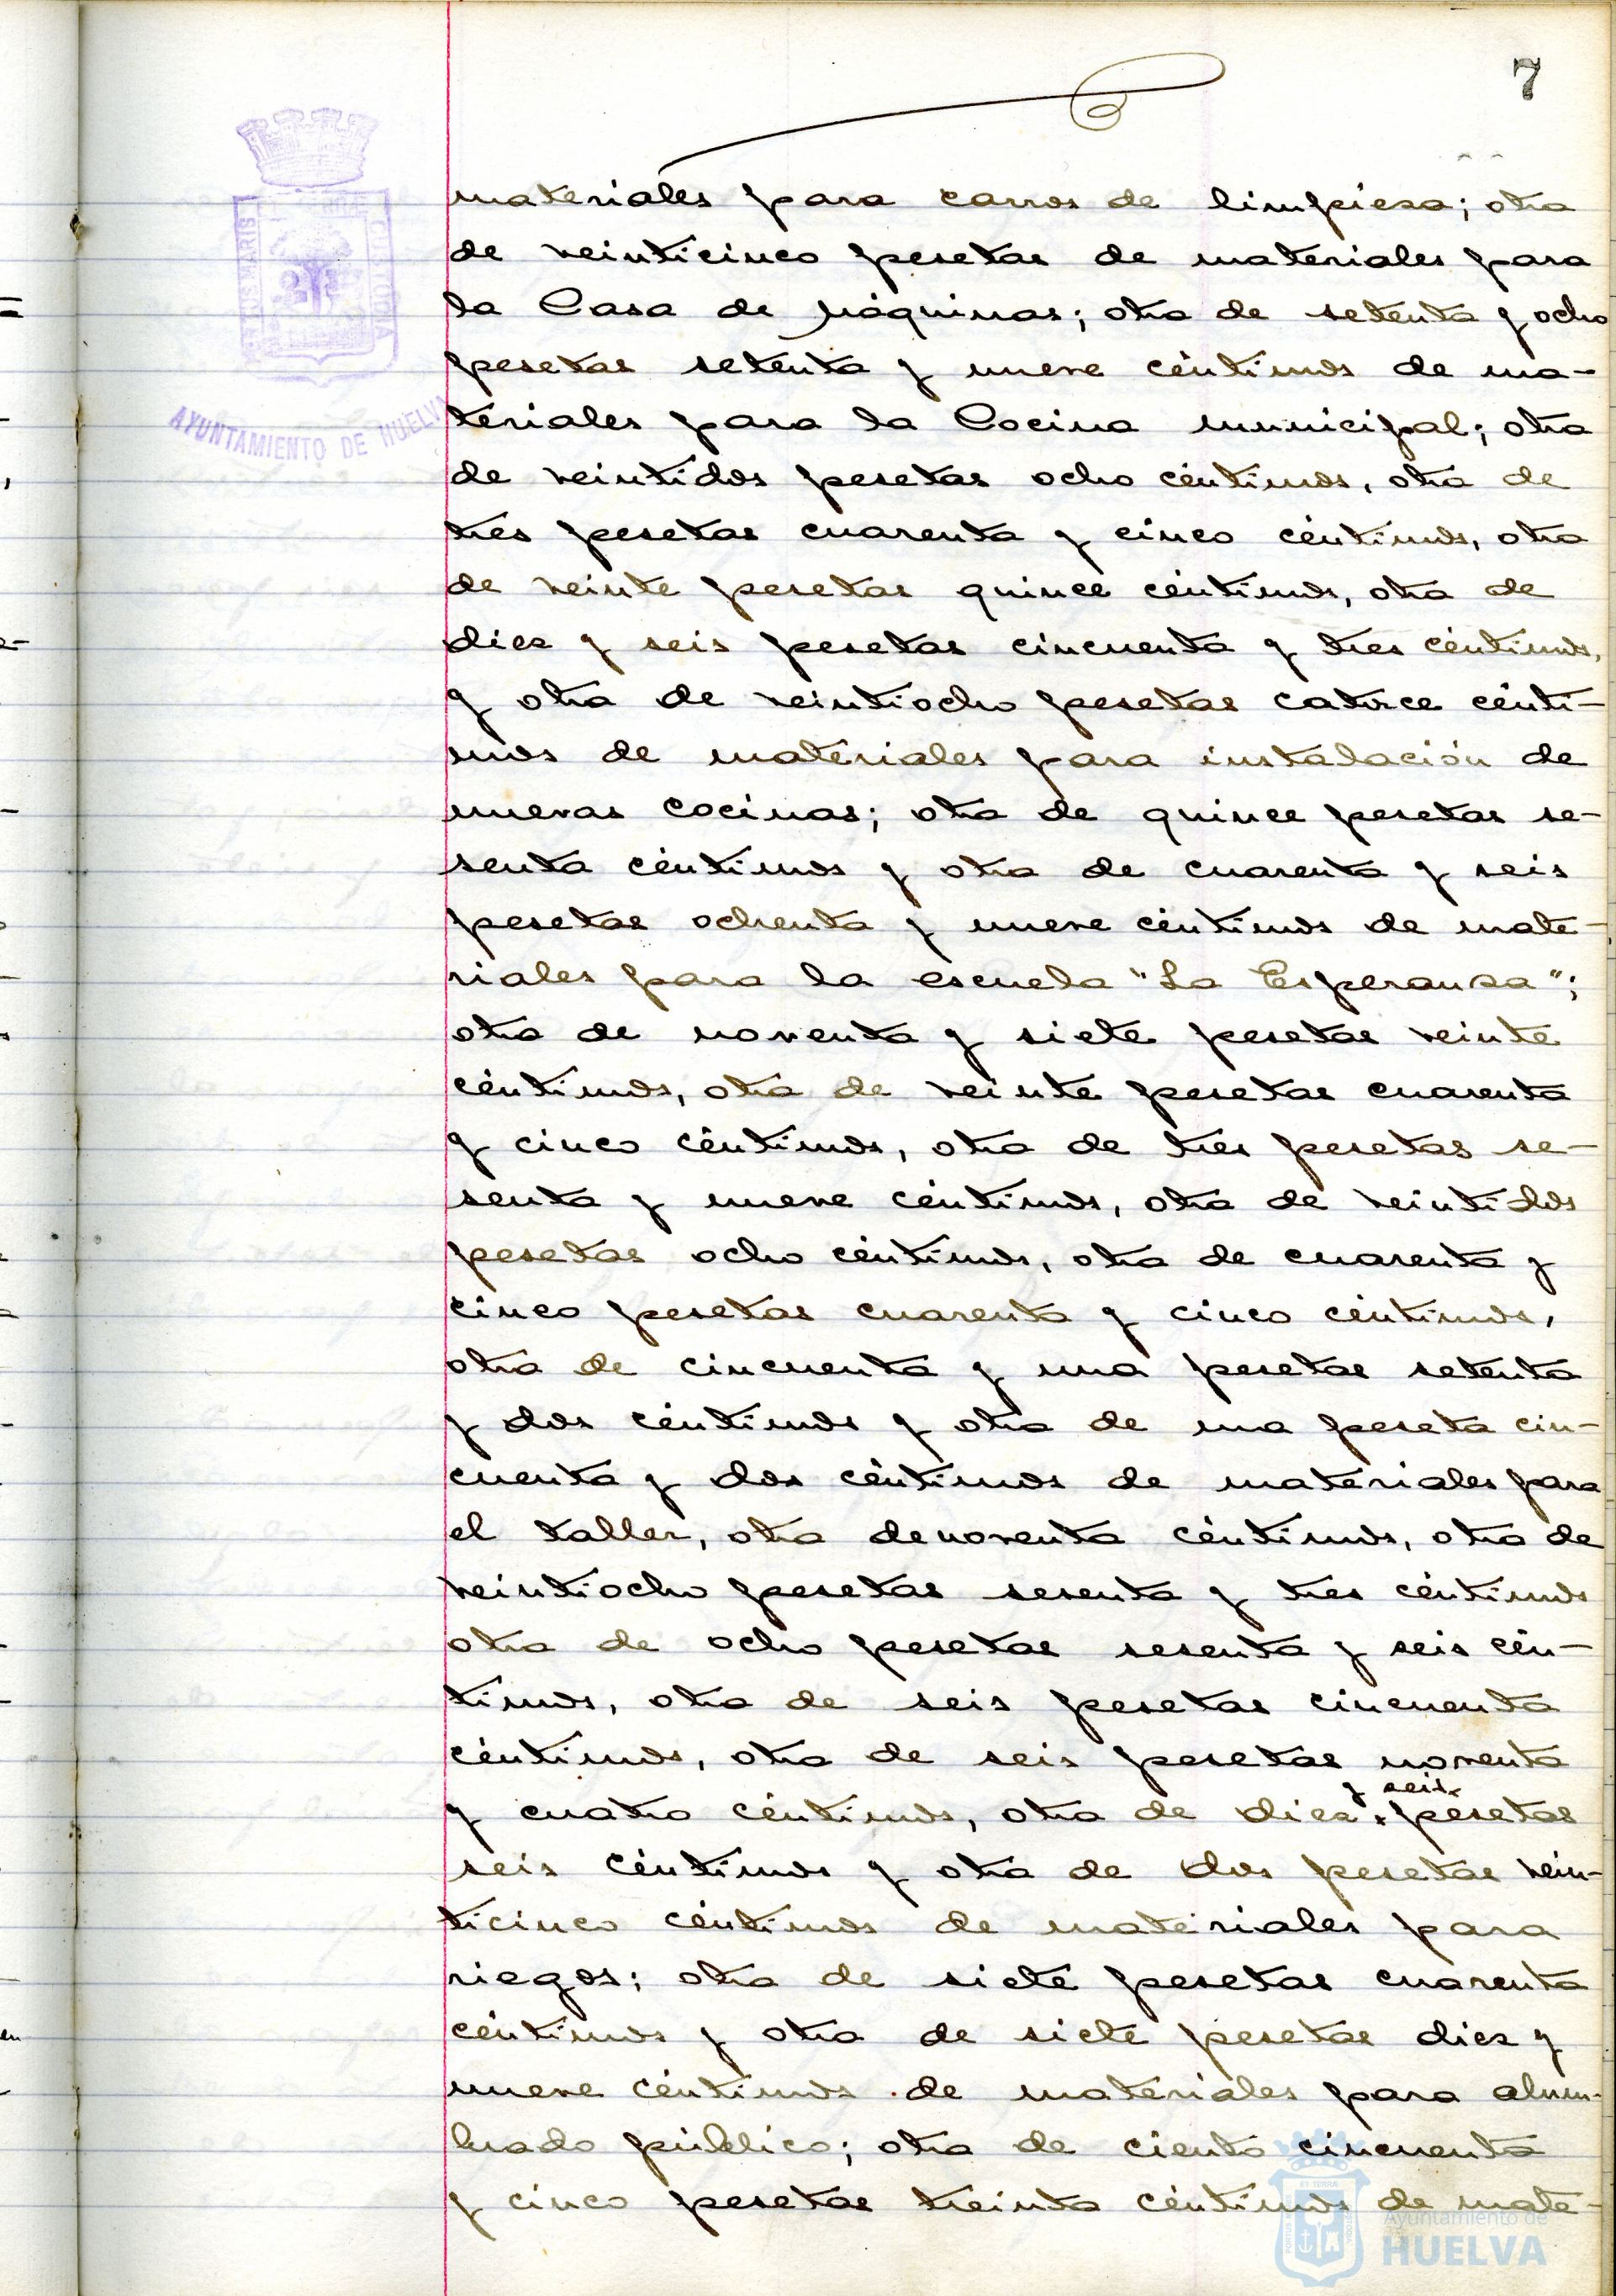 7
materiales para carros de limpieza; otra
de veinticinco pesetas de materiales para
la Casa de Máquinas; otra de setenta y ocho
pesetas setenta y nueve céntimos de ma-
teriales para la Cocina municipal; otra
de veintidos pesetas ocho céntimos, otra de
tres pesetas cuarenta y cinco céntimos, otra
de veinte pesetas quince céntimos, otra de
diez y seis pesetas cincuenta y tres céntimos,
y otra de veintiocho pesetas catorce cénti-
mos de materiales para instalación de
nuevas cocinas; otra de quince pesetas se-
senta céntimos y otra de cuarenta y seis
pesetas ochenta y nueve céntimos de mate-
riales para la escuela "La Esperanza";
otra de noventa y siete pesetas veinte
céntimos, otra de veinte pesetas cuarenta
y cinco céntimos, otra de tres pesetas se-
senta y nueve céntimos, otra de veintidos
pesetas ocho céntimos, otra de cuarenta y
cinco pesetas cuarenta y cinco céntimos,
otra de cincuenta y una pesetas setenta
y dos céntimos y otra de una peseta cin-
cuenta y dos céntimos de materiales para
el taller, otra de noventa céntimos, otra de
veintiocho pesetas sesenta y tres céntimos
otra de ocho pesetas sesenta y seis cén-
timos, otra de seis pesetas cincuenta
céntimos, otra de seis pesetas noventa
y seis
y cuatro céntimos, otra de diez pesetas
seis céntimos y otra de dos pesetas vein-
ticinco céntimos de materiales para
riegos; otra de siete pesetas cuarenta
céntimos y otra de siete pesetas diez y
nueve céntimos de materiales para alum-
brado público; otra de ciento cincuenta
y cinco pesetas treinta céntimos de mate-
PORTUS MARIS
CUSTODIA
AYUNTAMIENTO DE HUELVA
Ayuntamiento de
HUELVA